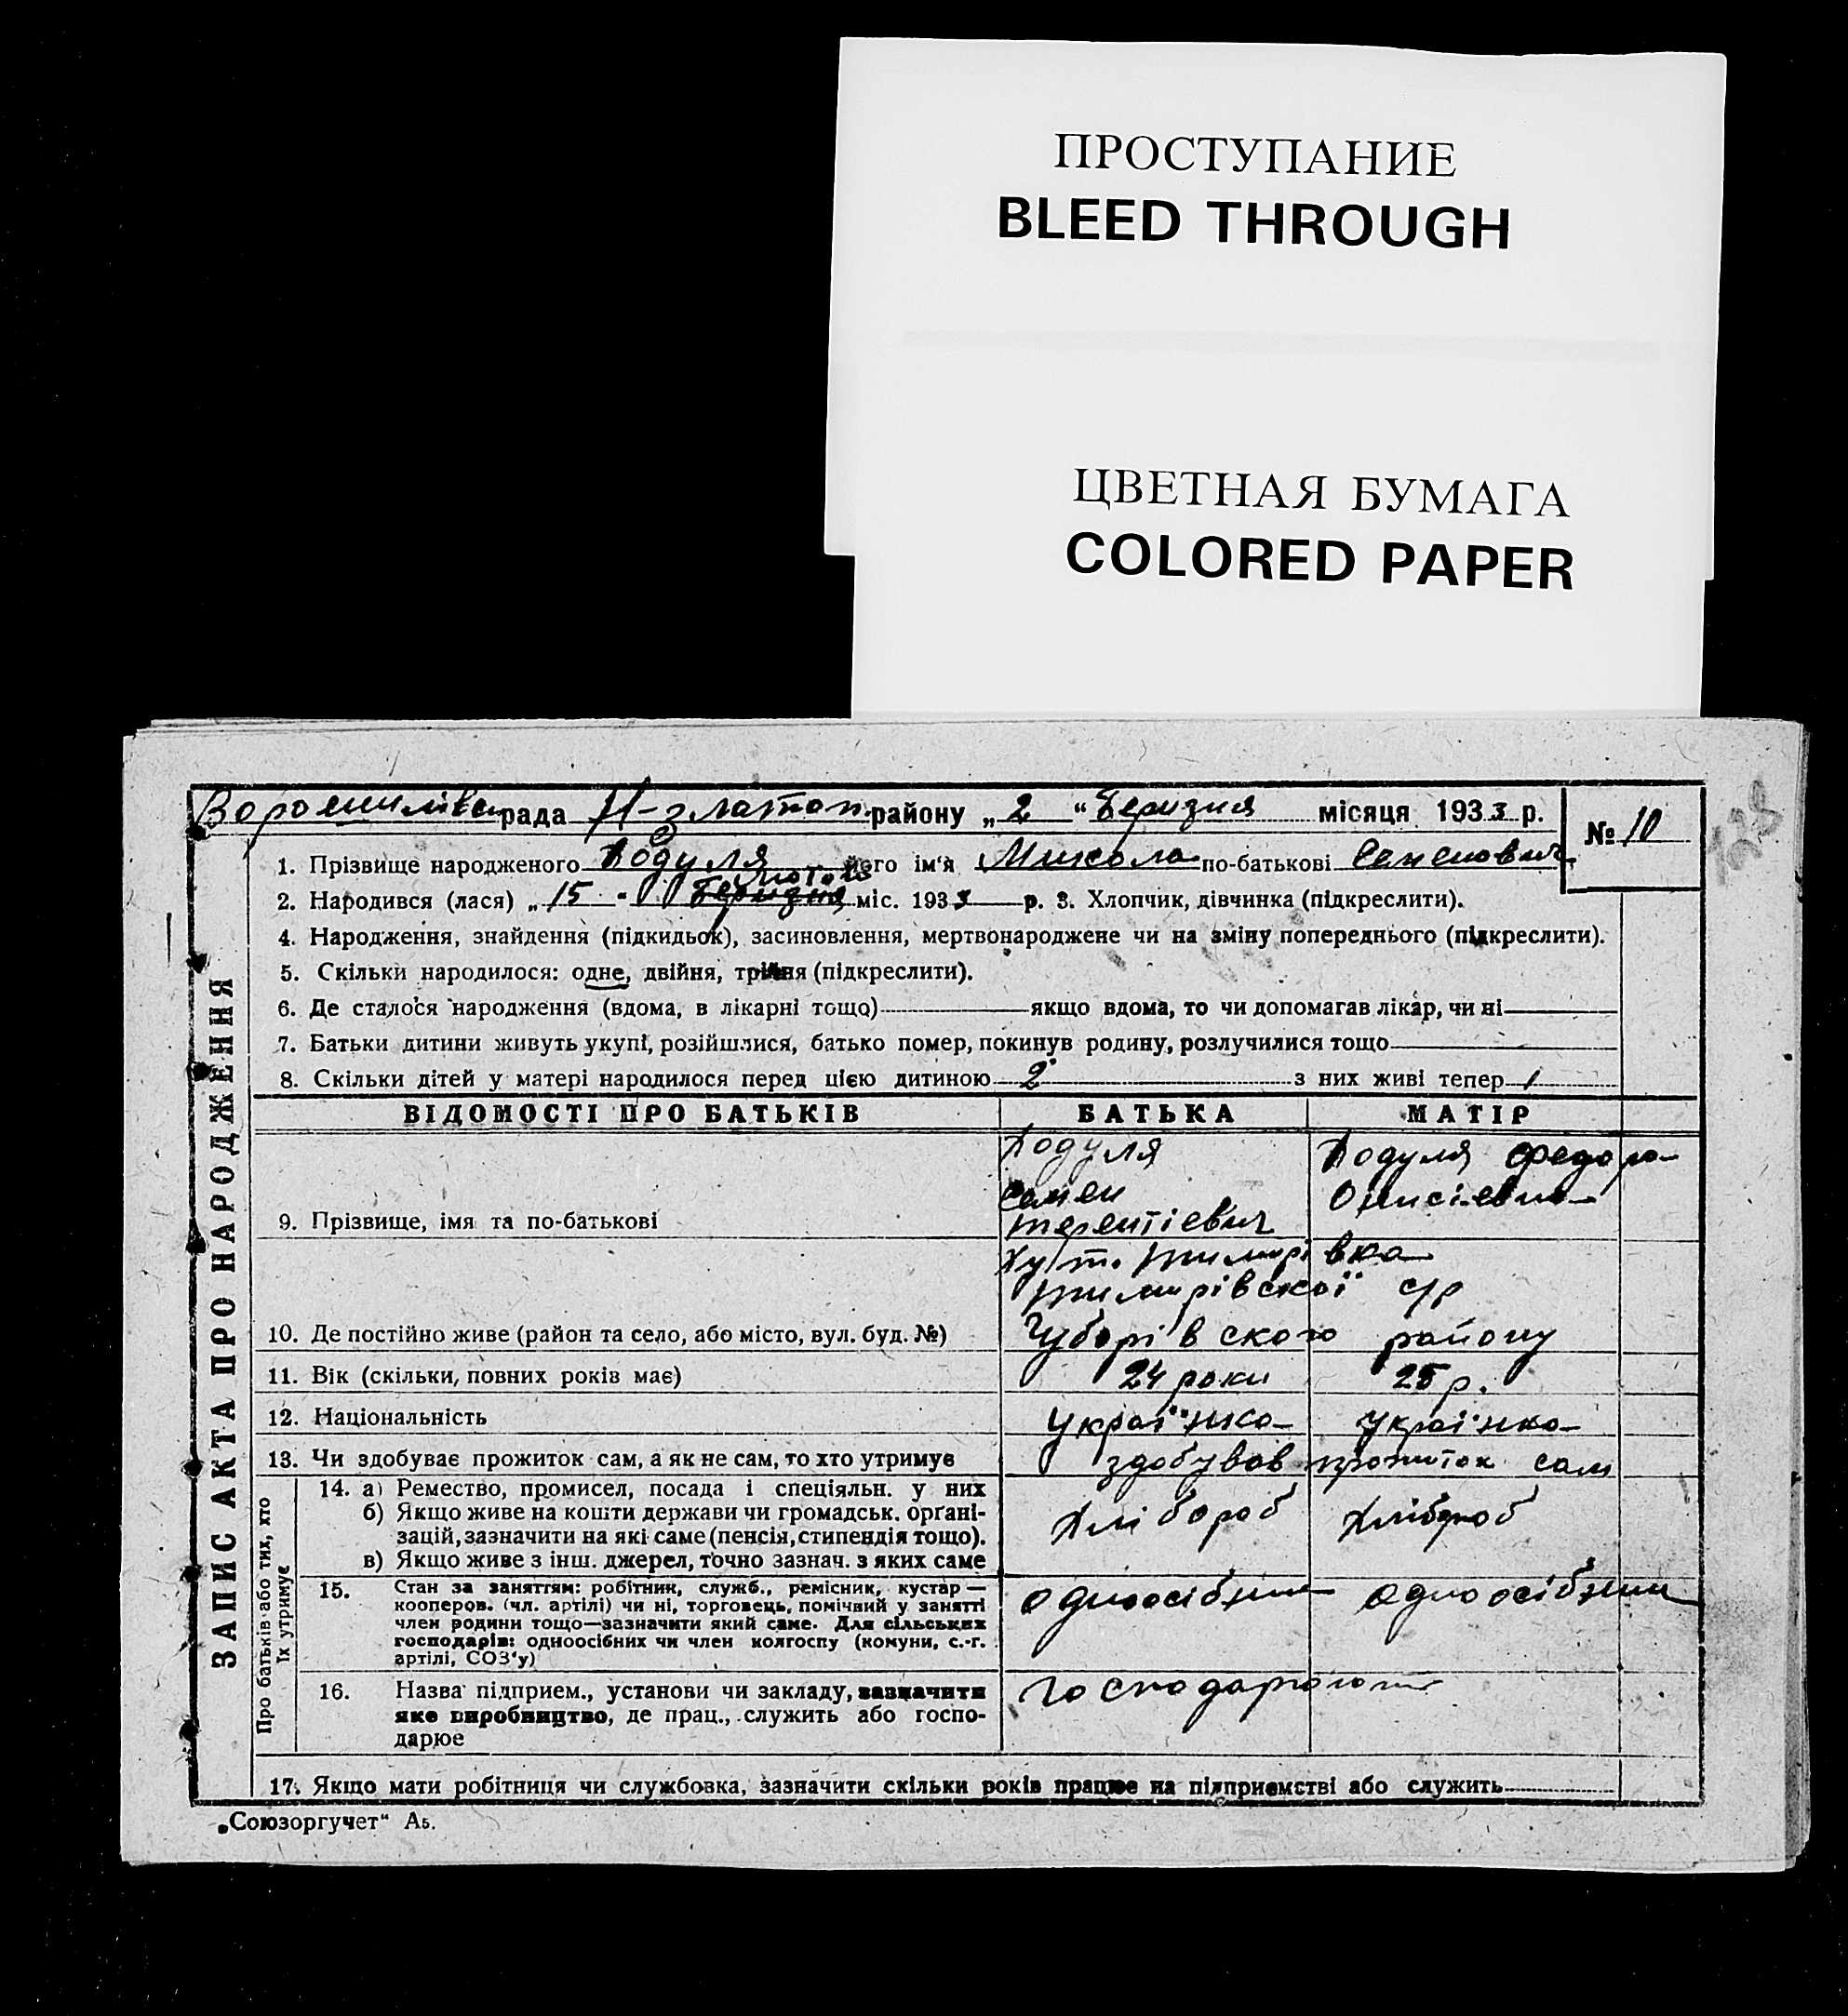 ПРОСТУПАНИЕ
BLEED THROUGH
ЦВЕТНАЯ БУМАГА
COLORED PAPER
рада Н-златоп. району „2“ Березня місяця 1933 р.
№ 10
1. Прізвище народженого Кодуля його ім'я Микола по-батькові Семенович
Лютого
2. Народився (лася) „15 “ Березня міс. 1933 р. 3. Хлопчик, дівчинка (підкреслити).
4. Народження, знайдення (підкидьок), засиновлення, мертвонароджене чи на зміну попереднього (підкреслити).
5. Скільки народилося: одне, двійня, трійня (підкреслити).
6. Де сталося народження (вдома, в лікарні тощо) якщо вдома, то чи допомагав лікар, чи ні
7. Батьки дитини живуть укупі, розійшлися, батько помер, покинув родину, розлучилися тощо
8. Скільки дітей у матері народилося перед цією дитиною 2 з них живі тепер 1
ЗАПИС АКТА ПРО НАРОДЖЕННЯ
ВІДОМОСТІ ПРО БАТЬКІВ БАТЬКА МАТІР
Кодуля Кодуля Федора
Семен
9. Прізвище, імя та по-батькові Терентієвич
10. Де постійно живе (район та село, або місто, вул. буд. №) району
11. Вік (скільки, повних років має) 24 роки 25 р.
12. Національність Українка Українка
13. Чи здобуває прожиток сам, а як не сам, то хто утримує здобував прожиток сам
Про батьків або тих, хто
їх утримує
14. а) Ремество, промисел, посада і спеціяльн. у них
б) Якщо живе на кошти держави чи громадськ. орґані-
зацій, зазначити на які саме (пенсія, стипендія тощо).
Хлібороб Хлібороб
в) Якщо живе з інш. джерел, точно зазнач. з яких саме
15. Стан за заняттям: робітник, служб., ремісник, кустар —
кооперов. (чл. артілі) чи ні, торговець, помічний у занятті
член родини тощо—зазначити який саме. Для сільських
господарів: одноосібних чи член колгоспу (комуни, с.-г.
артілі, СОЗ'у)
16. Назва підприєм., установи чи закладу, зазначити
яке виробництво, де прац., служить або госпо-
дарює
17. Якщо мати робітниця чи службовка, зазначити скільки років працює на підприємстві або служить
„Союзоргучет“ Аь.